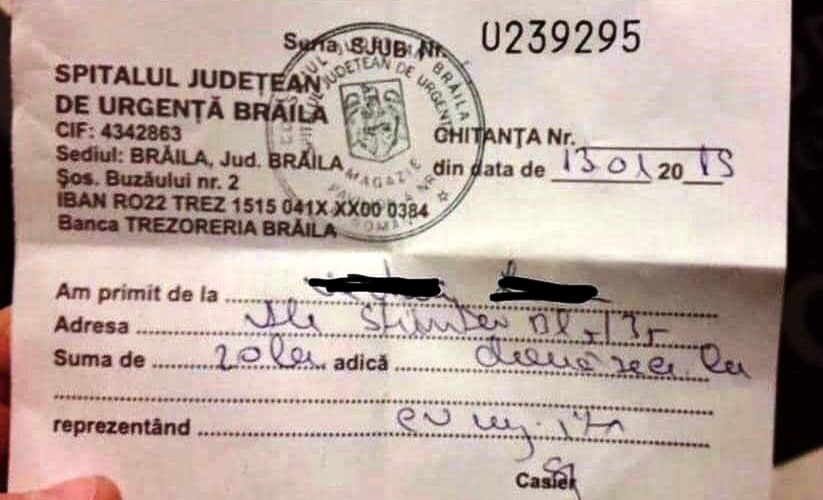 Seria SJUB Nr. 0239295
SPITALUL JUDEȚEAN
DE URGENȚĂ BRĂILA
CIF: 4342863
Sediul: BRĂILA, Jud. BRĂILA
Șos. Buzăului nr. 2
IBAN RO22 TREZ 1515 041X XX00 0384
Banca TREZORERIA BRĂILA
CHITANȚA Nr.
din data de 13 01 20
Am primit de la
Adresa
Suma de 20 lei adică două zeci lei
reprezentând
Casier
SPITALUL JUDEȚEAN DE URGENȚĂ
BRĂILA
MAGAZIE
ROMÂNIA